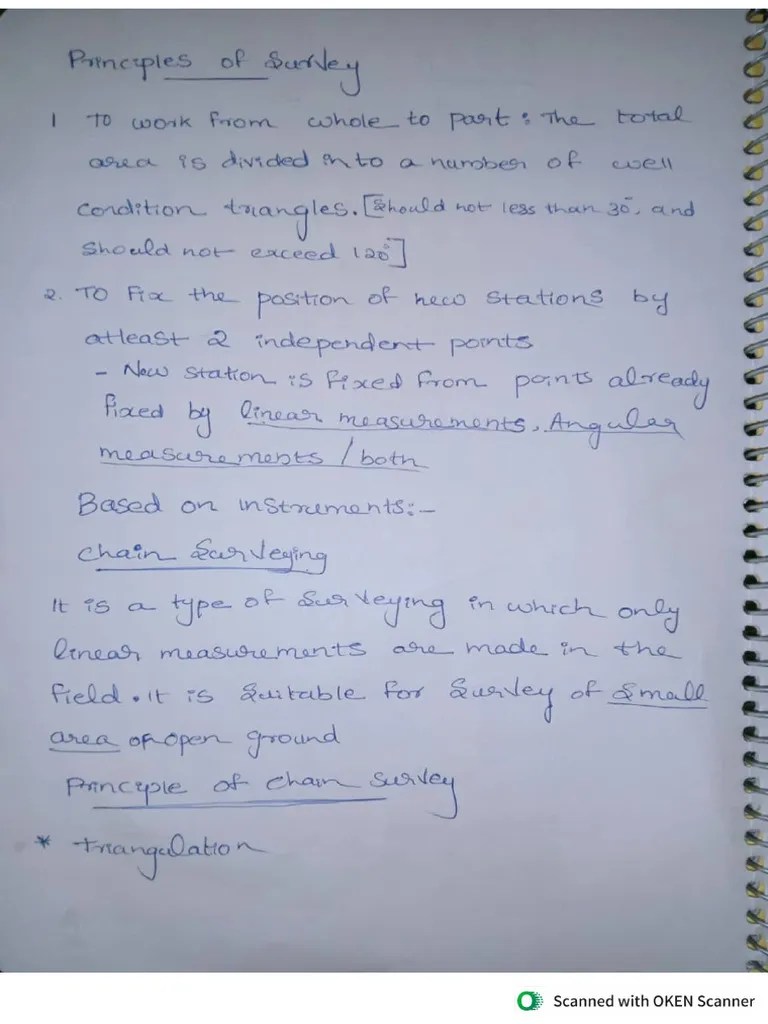 Principles of Survey
1 To work from whole to part: The total
area is divided into a number of well
condition triangles. [Should not less than 30°, and
Should not exceed 120°]
2. To Fix the position of new stations by
atleast 2 independent points
- New station is fixed from points already
fixed by linear measurements, Angular
measurements / both
Based on instruments:-
Chain Surveying
It is a type of Surveying in which only
linear measurements are made in the
field. It is Suitable for Survey of Small
area of open ground
Principle of chain survey
* Triangulation
Scanned with OKEN Scanner